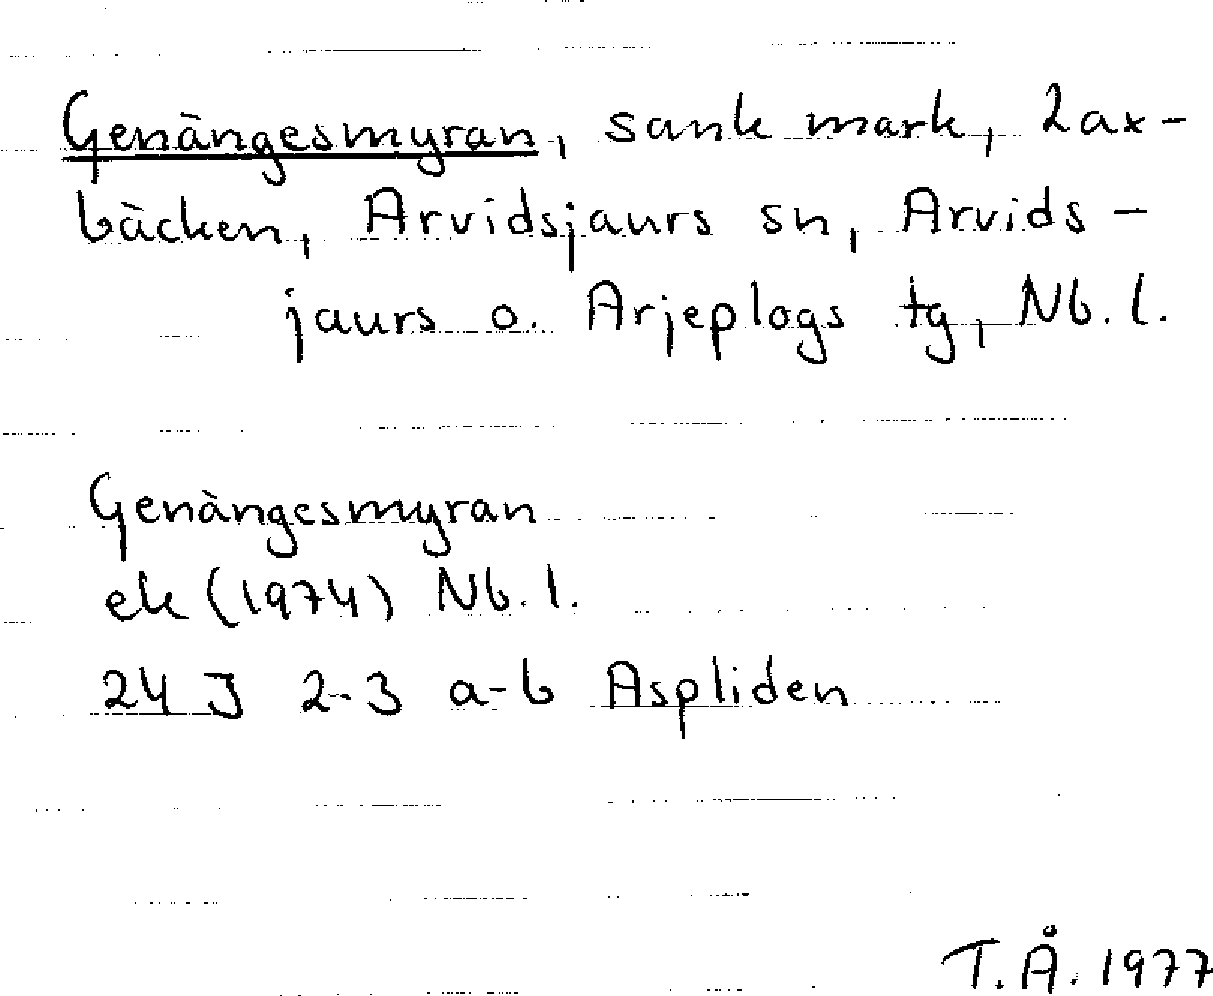 Genängesmyran, sank mark, Lax-
bäcken, Arvidsjaurs sn, Arvids-
jaurs o. Arjeplogs tg, Nb. l.
Genängesmyran
ek (1974) Nb. l.
24 J 2-3 a-b Aspliden
T. Å. 1977